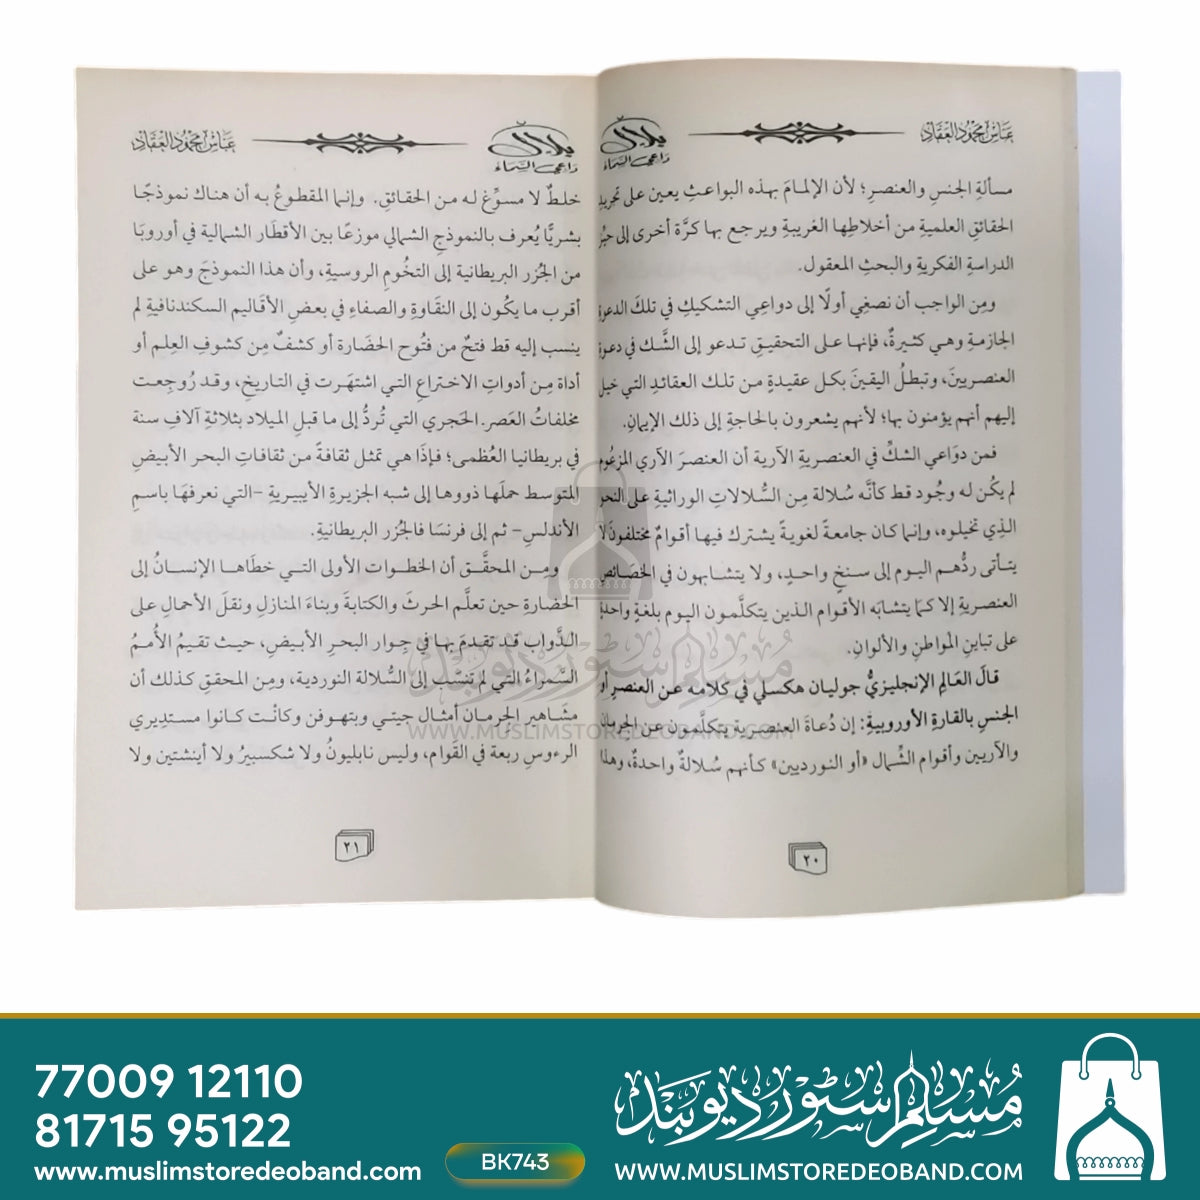 عباس محمود العقاد
بلال
داعي السماء
مسألةِ الجنسِ والعنصرِ؛ لأن الإلمامَ بهذه البواعثِ يعين على تجريدِ
الحقائقِ العلميةِ من أخلاطِها الغريبةِ ويرجع بها كرَّة أخرى إلى حيِّز
الدراسةِ الفكريةِ والبحثِ المعقول.
ومِن الواجب أن نصغي أولًا إلى دواعي التشكيكِ في تلكَ الدعوة
الجازمةِ وهي كثيرةٌ، فإنها على التحقيقِ تدعو إلى الشَّك في دعوةِ
العنصريينَ، وتبطلُ اليقينَ بكل عقيدةٍ من تلك العقائدِ التي خيل
إليهم أنهم يؤمنون بها؛ لأنهم يشعرون بالحاجةِ إلى ذلك الإيمانِ.
فمن دوَاعي الشكِّ في العنصريةِ الآرية أن العنصرَ الآري المزعُوم
لم يكُن له وجُود قط كأنَّه سُلالة مِن السُّلالاتِ الوراثيةِ على النحو
الذِي تخيلوه، وإنما كان جامعةً لغويةً يشترك فيها أقوامٌ مختلفونَ لا
يتأتى ردُّهم اليوم إلى سنخٍ واحدٍ، ولا يتشابهون في الخصَائص
العنصريةِ إلا كمَا يتشابَه الأقوام الذين يتكلَّمون اليوم بلغةٍ واحدةٍ
على تباينِ المواطنِ والألوانِ.
قالَ العَالم الإنجليزيُّ جوليان هكسلي في كلامه عن العنصرِ أو
الجنسِ بالقارةِ الأوروبيةِ: إن دُعاةَ العنصرية يتكلَّمون عن الجرمان
والآريين وأقوام الشِّمال «أو النورديين» كأنهم سُلالةٌ واحدةٌ، وهذا
٢٠
بلال
داعي السماء
عباس محمود العقاد
خلطٌ لا مسوِّغ له من الحقائقِ. وإنما المقطوعُ به أن هناك نموذجًا
بشريًّا يُعرف بالنموذجِ الشمالي موزعًا بين الأقطَار الشمالية في أوروبَا
من الجُزر البريطانية إلى التخُومِ الروسيةِ، وأن هذا النموذجَ وهو على
أقرب ما يكُون إلى النقَاوةِ والصفاءِ في بعضِ الأقاليم السكندنافية لم
ينسب إليه قط فتحٌ من فتُوح الحضَارة أو كشفٌ مِن كشوفِ العِلم أو
أداة مِن أدواتِ الاختراعِ التي اشتهَرت في التاريخِ، وقد رُوجِعت
مخلفاتُ العَصر الحَجري التي تُردُّ إلى ما قبل الميلاد بثلاثةِ آلافِ سنة
في بريطانيا العُظمى؛ فإذَا هي تمثل ثقافةً من ثقافاتِ البحر الأبيضِ
المتوسط حملَها ذووها إلى شبه الجزيرةِ الأيبيريةِ –التي نعرفهَا باسمِ
الأندلسِ– ثم إلى فرنسَا فالجُزر البريطانيةِ.
ومِن المحقَّق أن الخطوات الأولى التي خطَاها الإنسانُ إلى
الحضَارةِ حين تعلَّم الحرثَ والكتابةَ وبناءَ المنازلِ ونقلَ الأحمالِ على
الدَّواب قد تقدمَ بها في جِوار البحرِ الأبيضِ، حيث تقيمُ الأممُ
السَّمراءُ التي لم تنسَّب إلى السُّلالة النوردية، ومِن المحققِ كذلك أن
مشَاهير الجرمان أمثال جيتي وبتهوفن وكانْت كانوا مستدِيري
الرءوسِ ربعة في القَوام، وليس نابليونُ ولا شكسبيرُ ولا أينشتين ولا
٢١
مسلم سٹور دیوبند
WWW.MUSLIMSTOREDEOBAND.COM
77009 12110
81715 95122
www.muslimstoredeoband.com
BK743
مسلم سٹور دیوبند
WWW.MUSLIMSTOREDEOBAND.COM